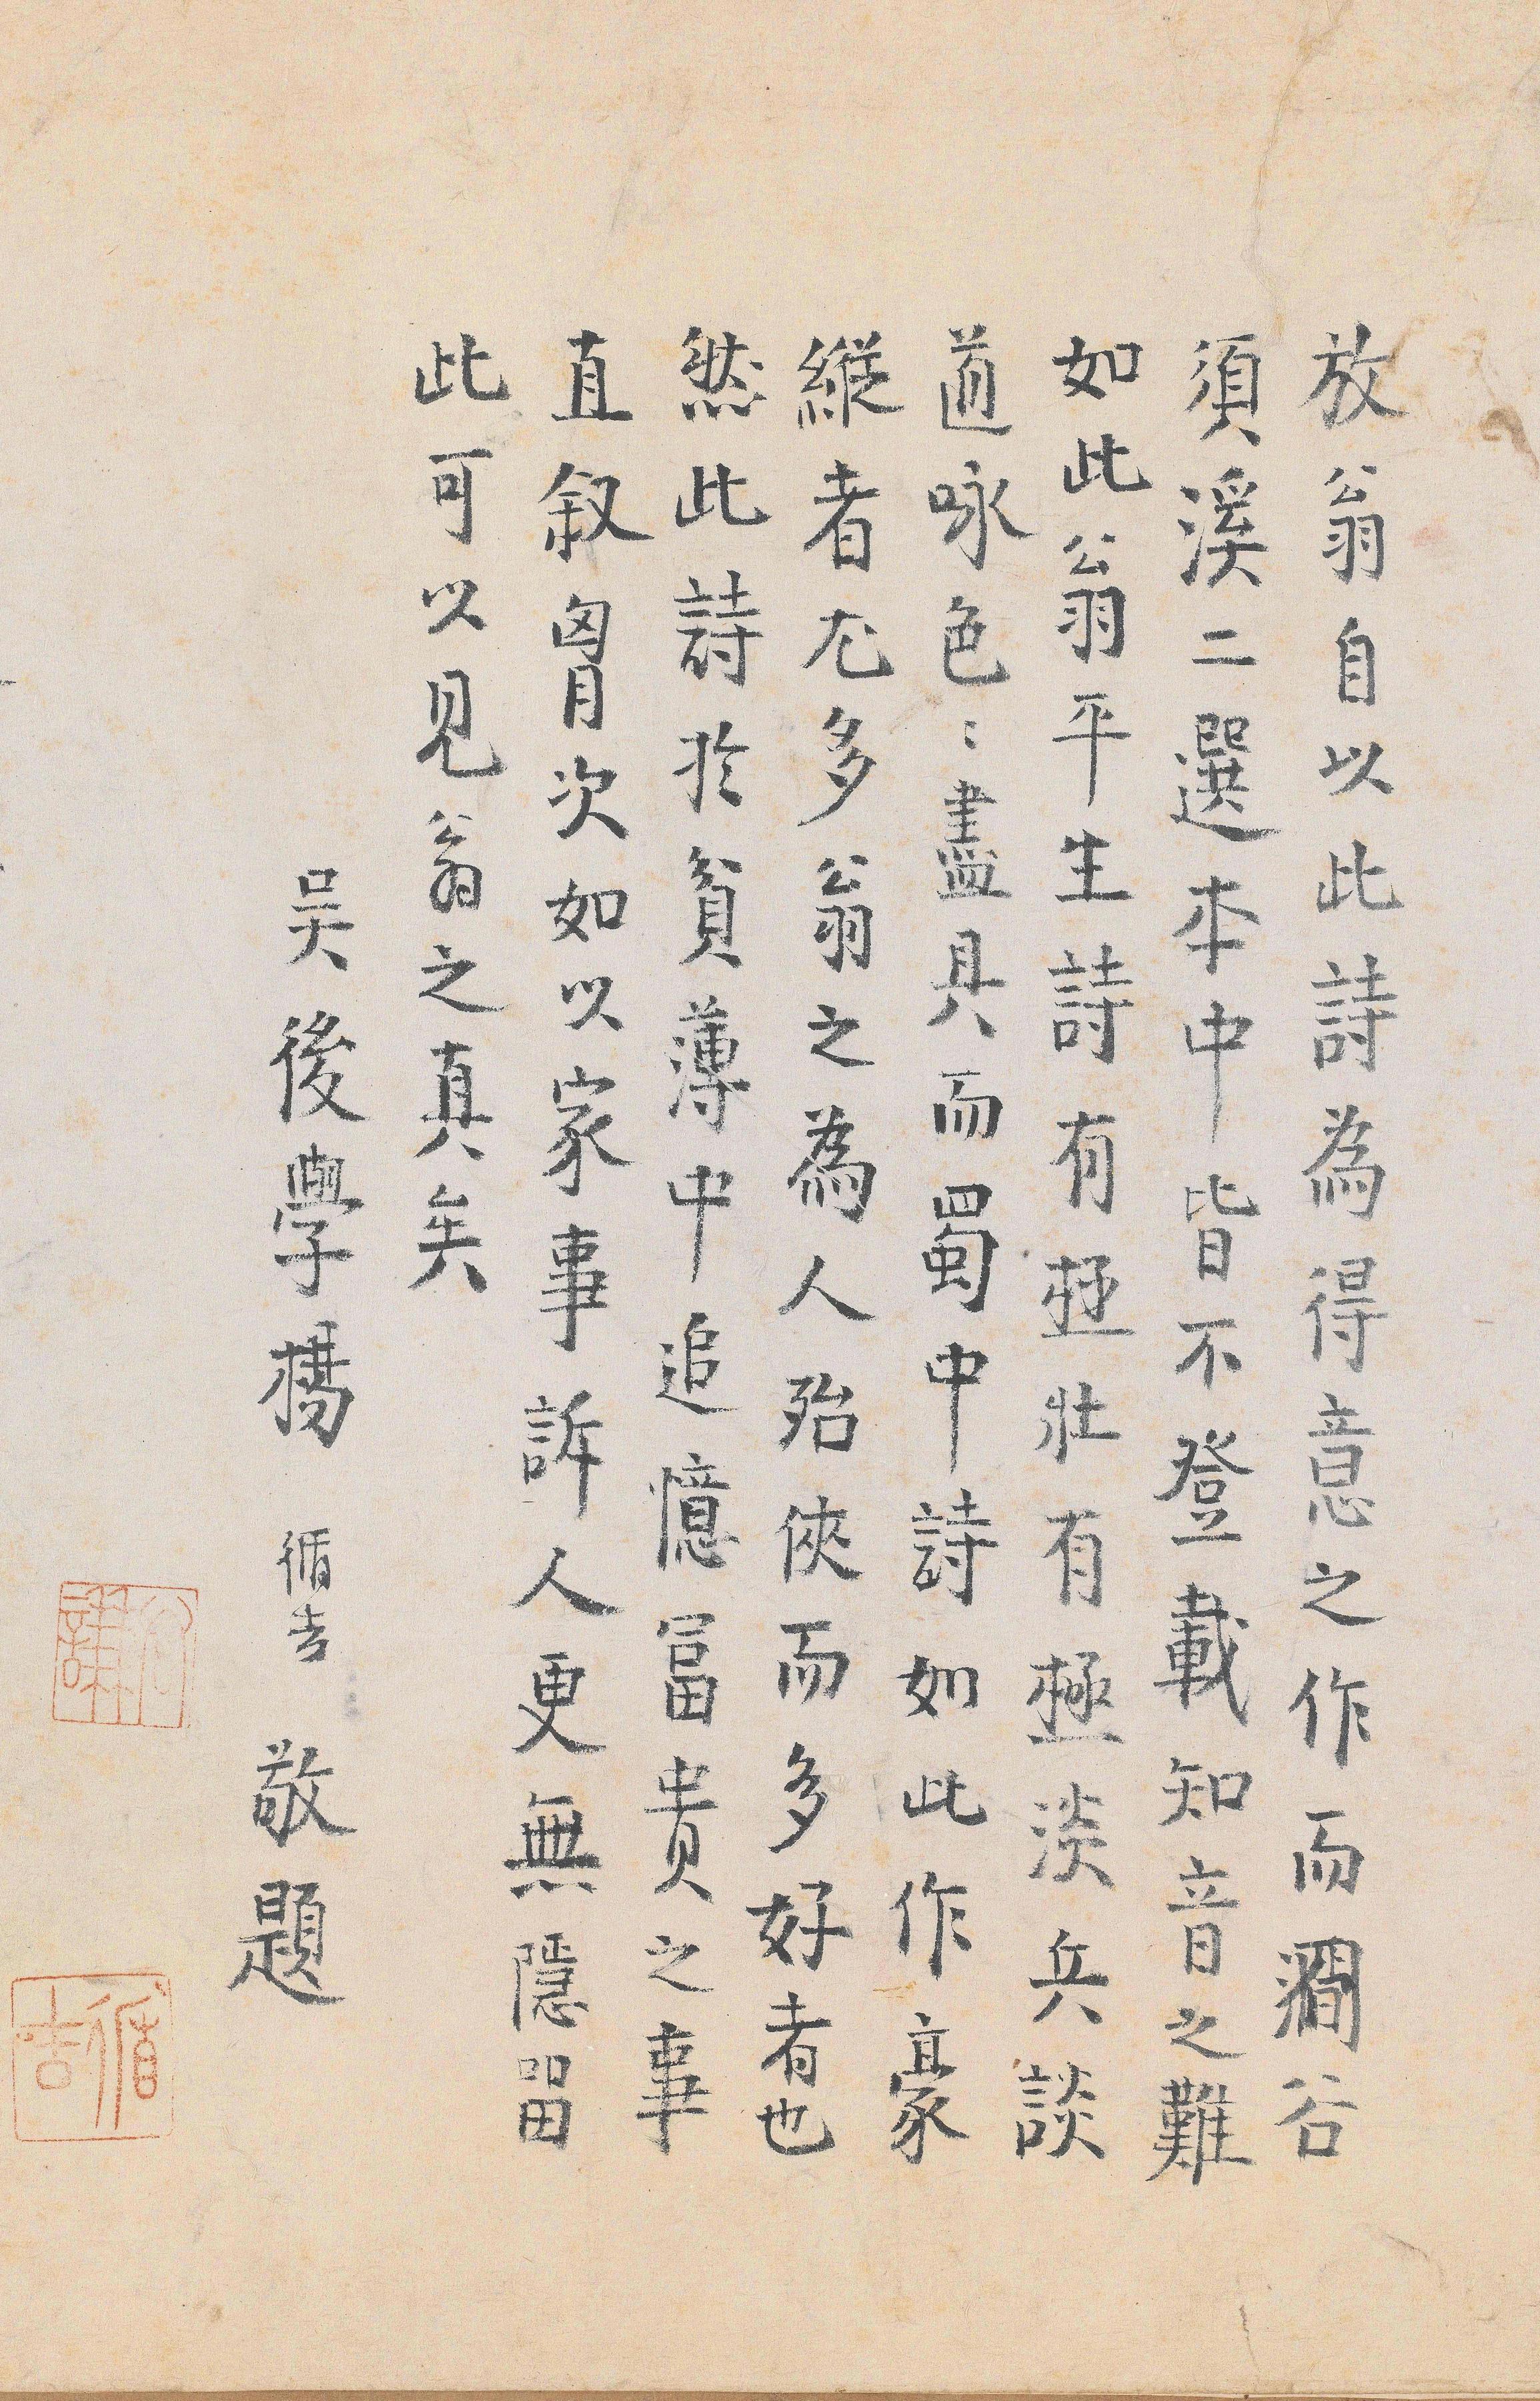 放翁自以此詩為得意之作而澗谷
須溪二選本中皆不登載知音之難
如此翁平生詩有極壯有極淡兵談
道咏色〻盡具而蜀中詩如此作豪
縱者尤多翁之為人殆俠而多好者也
然此詩於貧薄中追憶富貴之事
直叙胷次如以家事訴人更無隱留
此可以見翁之真矣
吴後學楊循吉敬題
循吉